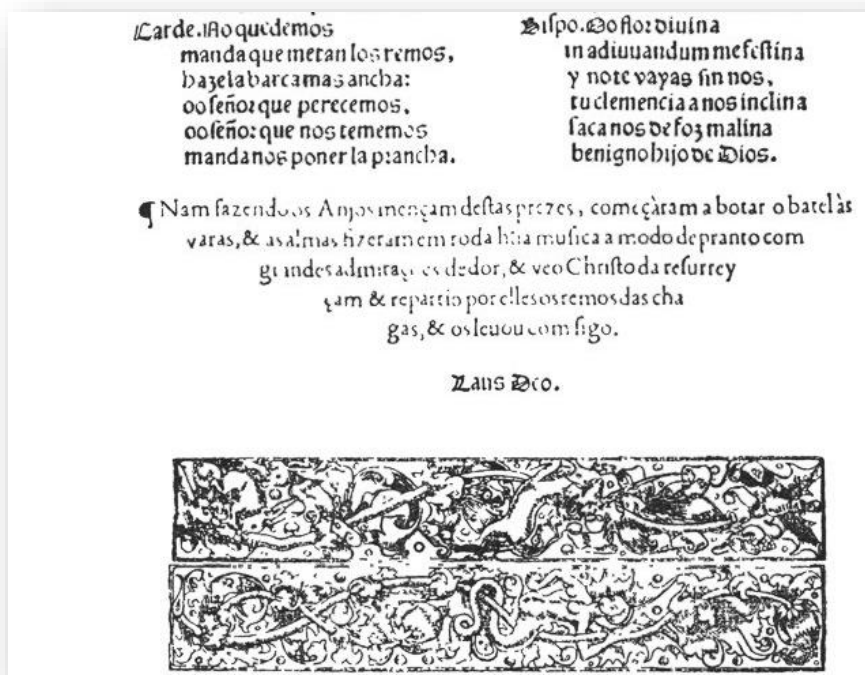 Carde. No quedemos
manda que metan los remos,
hazela barca mas ancha:
oo señor que perecemos,
oo señor que nos tememos
mandanos poner la prancha.
Bispo. Oo flor diuina
in adiuuandum me festina
y no te vayas sin nos,
tu clemencia a nos inclina
saca nos de foz malina
benigno hijo de Dios.
¶ Nam fazendo os Anjos mençam destas prezes, começàram a botar o batel às
varas, & as almas fizeram em roda hũa musica a modo de pranto com
grandes admirações de dor, & veo Christo da resurrey
çam & repartio por elles os remos das cha
gas, & os leuou com sigo.
Laus Deo.